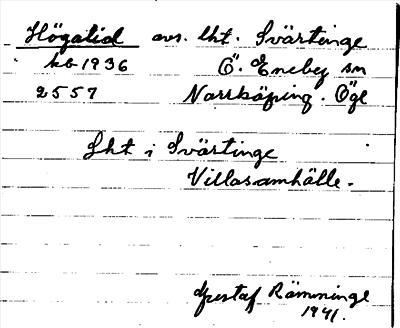 Högalid avs. lht. Svärtinge
kb 1936 Ö. Eneby sn
2557 Norrköping. Ögl
Lht i Svärtinge
Villasamhälle.
Gustaf Rämninge
1941.